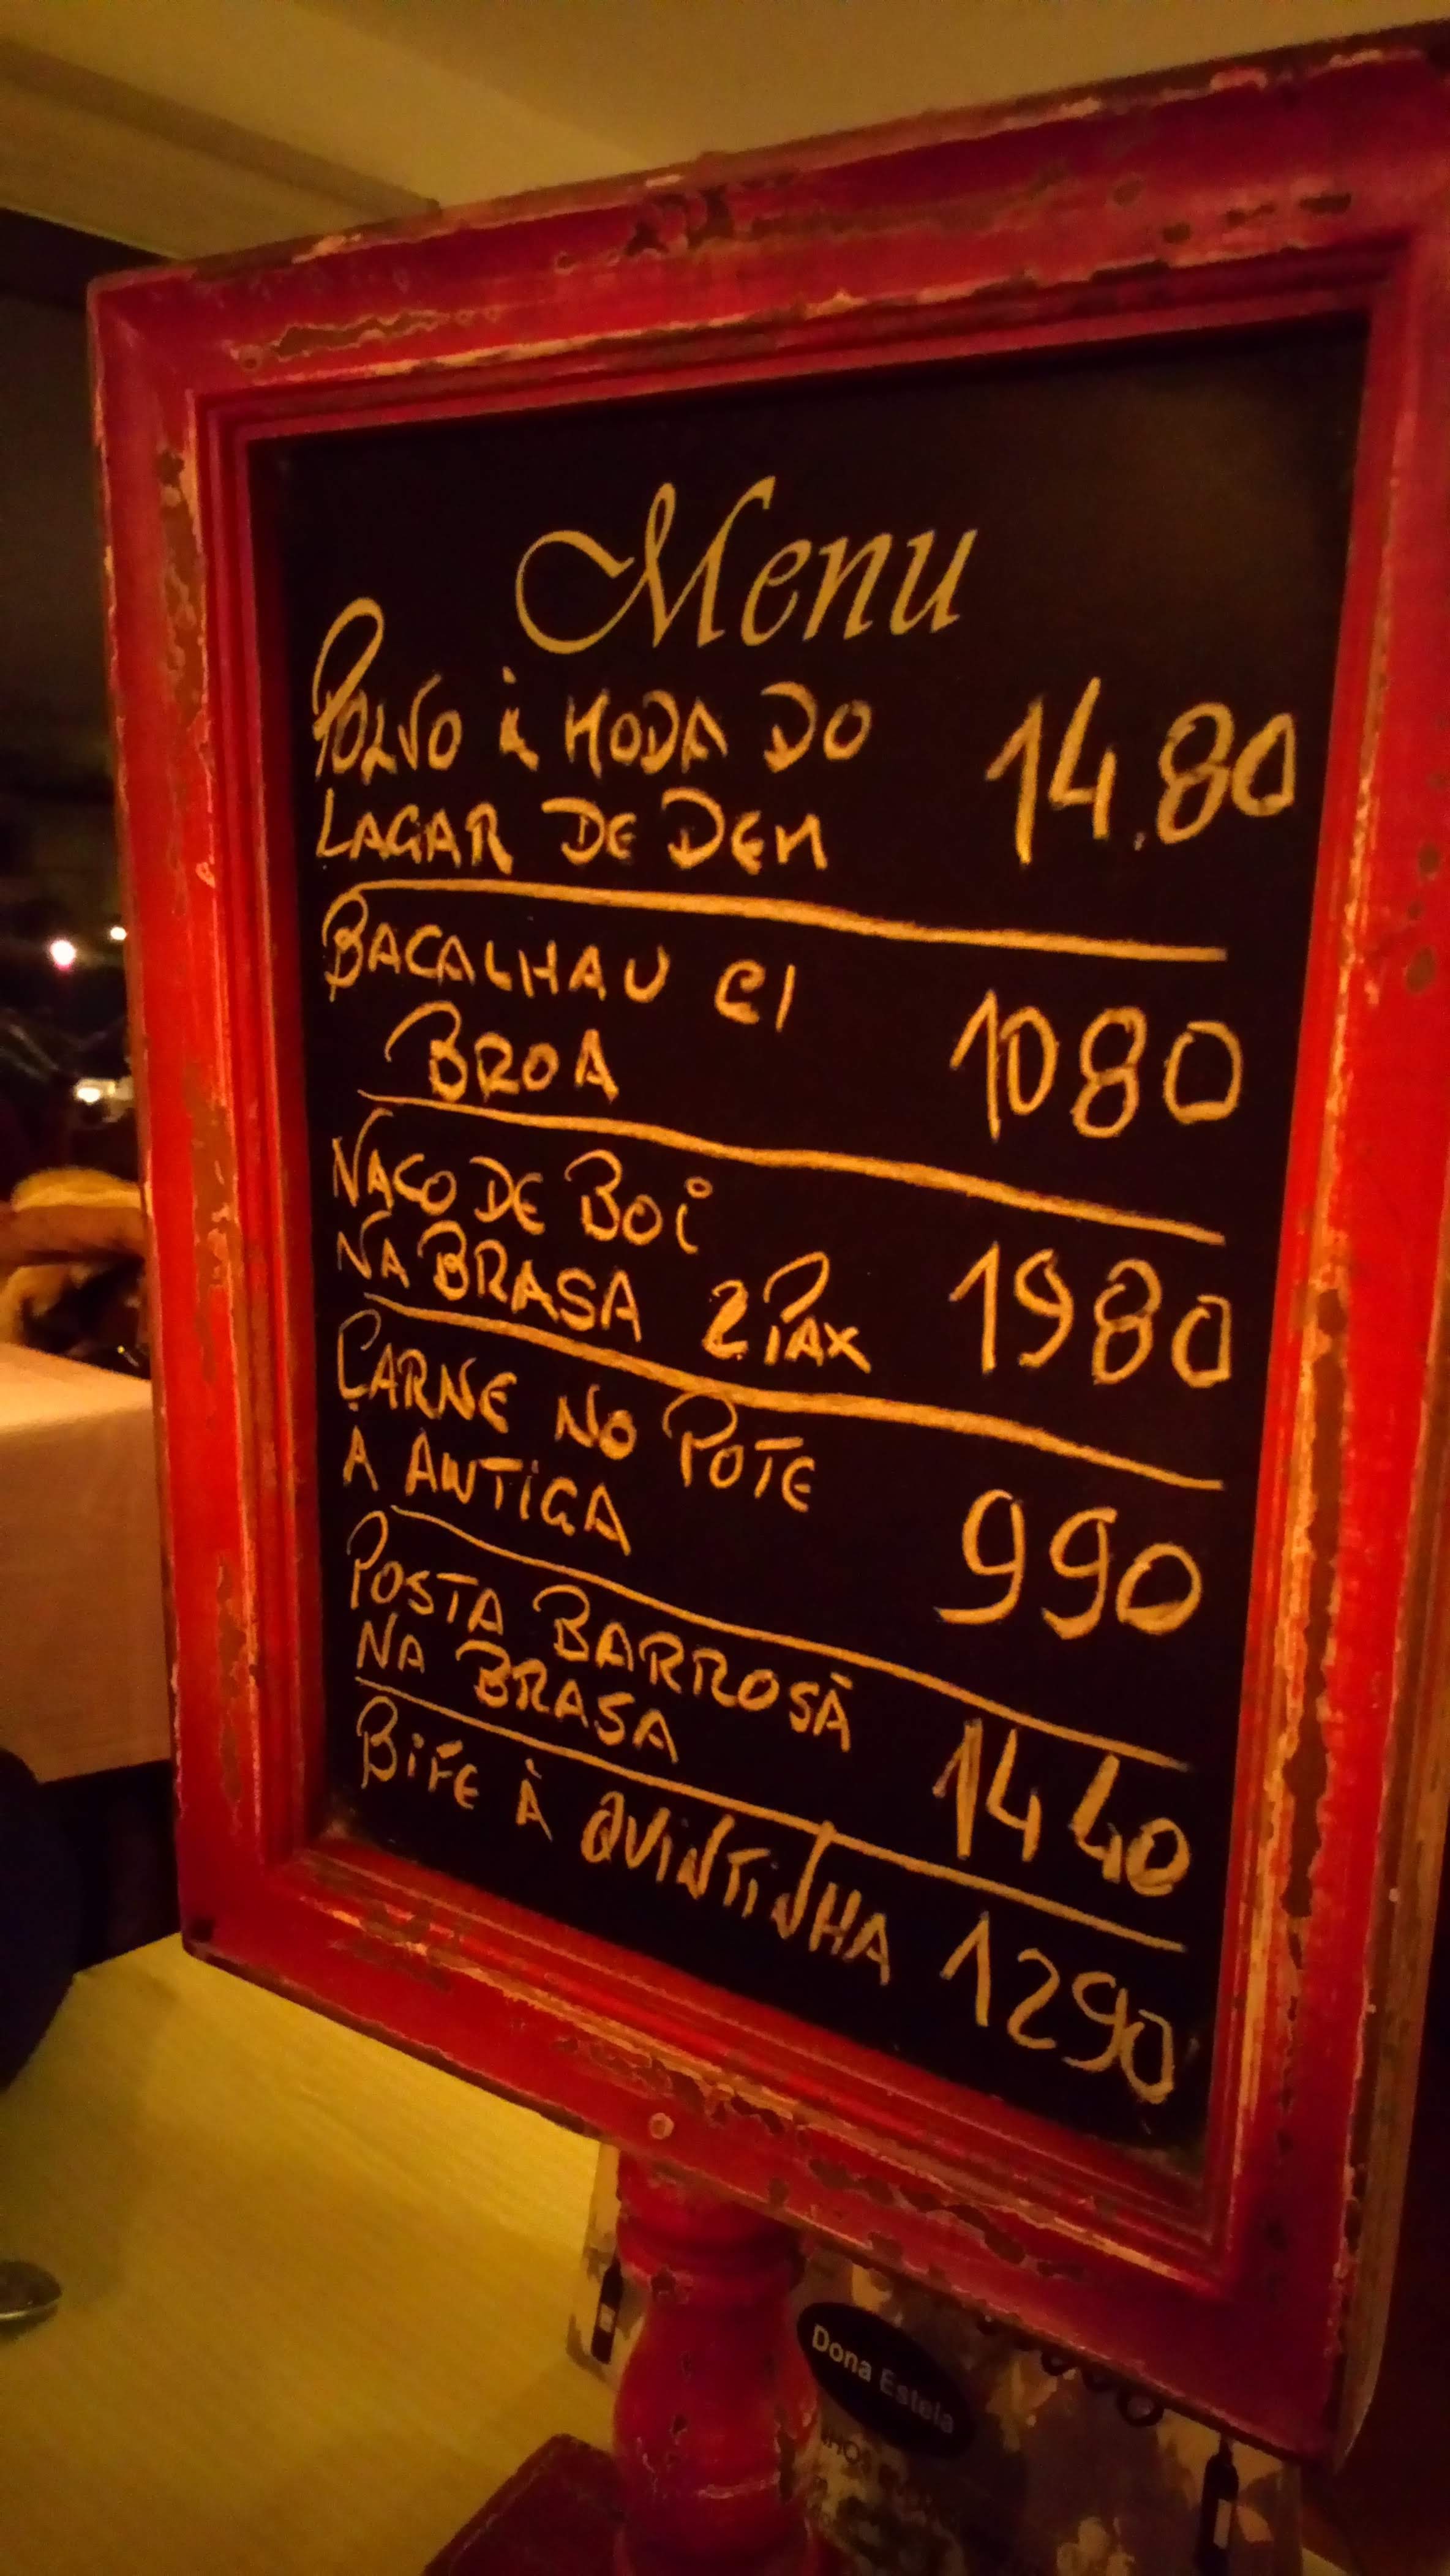 Menu
POLVO à MODA DO 14.80
LAGAR DE DEM
BACALHAU C/
BROA 1080
NACO DE BOi
NA BRASA 2 PAX 1980
CARNE NO POTE
À ANTIGA 990
POSTA BARROSÃ
NA BRASA 1440
BiFE À QUiNTiNHA 1290
Dona Estela